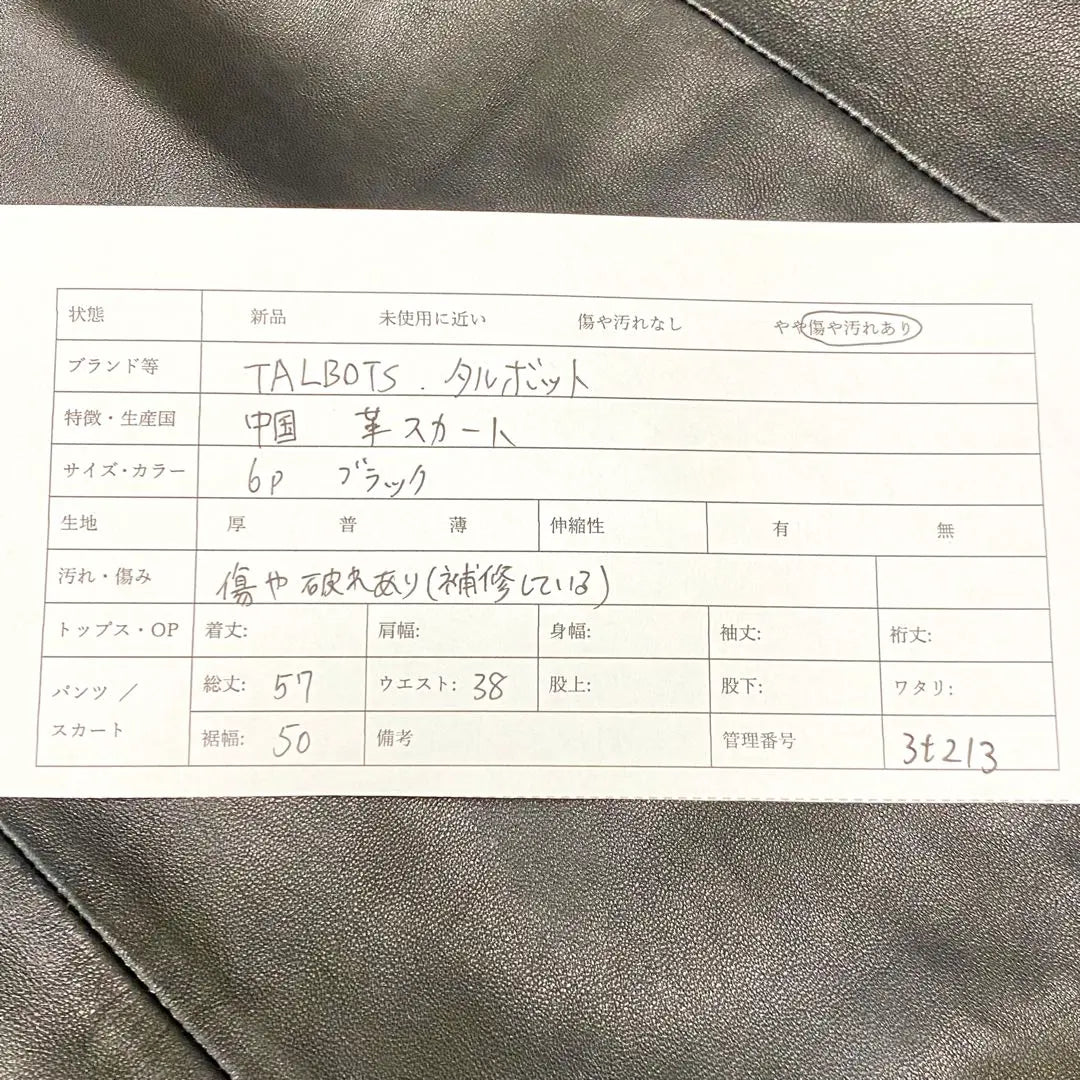 状態 新品 未使用に近い 傷や汚れなし やや傷や汚れあり
ブランド等 TALBOTS. タルボット
特徴・生産国 中国 革スカート
サイズ・カラー 6P ブラック
生地 厚 普 薄 伸縮性 有 無
汚れ・傷み 傷や破れあり(補修している)
トップス・OP 着丈: 肩幅: 身幅: 袖丈: 裄丈:
パンツ／スカート 総丈: 57 ウエスト: 38 股上: 股下: ワタリ:
裾幅: 50 備考 管理番号 3t213